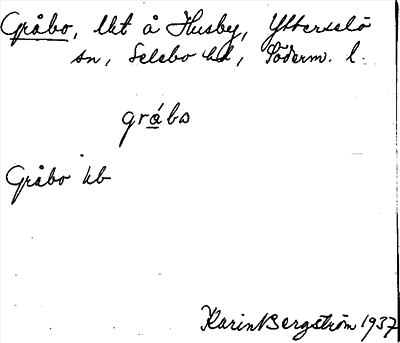 Gråbo, lht å Husby, Ytterselö
sn, Selebo hd, Söderm. l.
gråbo
Gråbo kb
Karin Bergström 1937